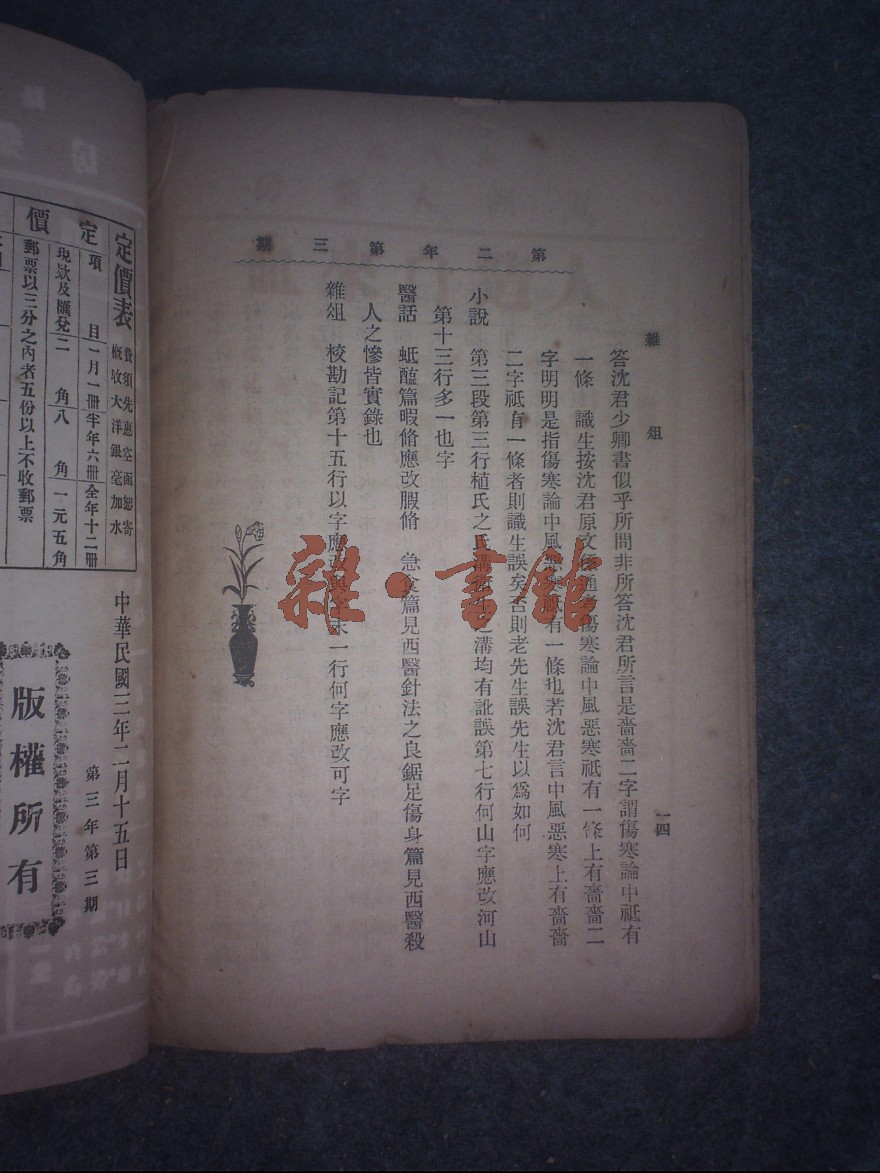 第二年第三期
雜俎
一四
答沈君少卿書似乎所問非所答沈君所言是嗇嗇二字謂傷寒論中祗有
一條　識生按沈君原文傷寒論中風惡寒祗有一條上有嗇嗇二
字明明是指傷寒論中風惡寒祗有一條也若沈君言中風惡寒上有嗇嗇
二字祗有一條者則識生誤矣否則老先生誤先生以爲如何
小說　第三段第三行植氏之氏溝均有訛誤第七行何山字應改河山
第十三行多一也字
醫話　蚔醢篇暇脩應改腶脩　急食篇見西醫針法之良鋸足傷身篇見西醫殺
人之慘皆實錄也
雜俎　校勘記第十五行以字應改與字末一行何字應改可字
雜·書館
定價表
費須先惠空函恕寄
概收大洋銀毫加水
定價
項目
一月一冊
半年六冊
全年十二冊
現欵及匯兌
二角
八角
一元五角
郵票以三分之內者五份以上不收郵票
中華民國三年二月十五日
第三年第三期
版權所有